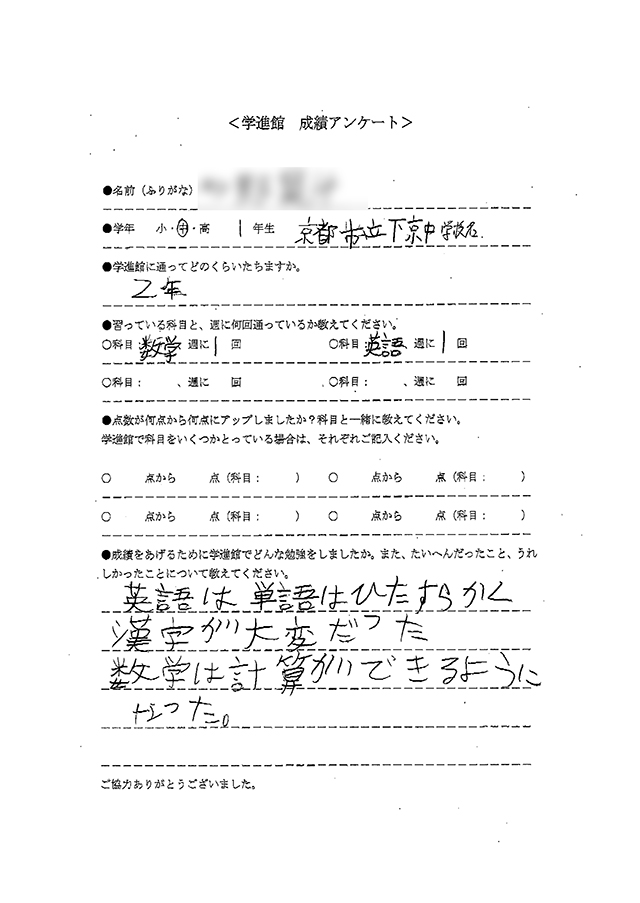 <学進館　成績アンケート>
●名前（ふりがな）
●学年　小・中・高　1年生　京都市立下京中学校名.
●学進館に通ってどのくらいたちますか。
2年
●習っている科目と、週に何回通っているか教えてください。
○科目　数学　週に1回　○科目　英語　週に1回
○科目：　、週に　回　○科目：　、週に　回
●点数が何点から何点にアップしましたか？科目と一緒に教えてください。
学進館で科目をいくつかとっている場合は、それぞれご記入ください。
○　点から　点（科目：　）○　点から　点（科目：　）
○　点から　点（科目：　）○　点から　点（科目：　）
●成績をあげるために学進館でどんな勉強をしましたか。また、たいへんだったこと、うれ
しかったことについて教えてください。
英語は単語はひたすらかく
漢字が大変だった
数学は計算ができるように
なった。
ご協力ありがとうございました。